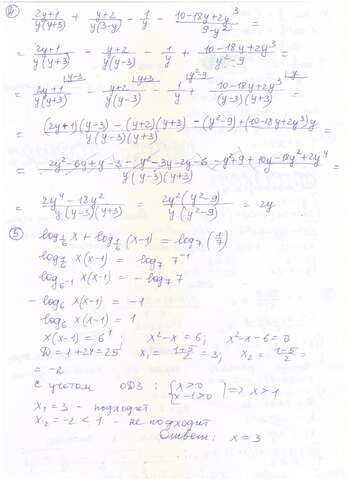 4) (2y+1)/(y(y+3)) + (y+2)/(y(3-y)) - 1/y - (10-18y+2y³)/(9-y²) =
= (2y+1)/(y(y+3)) - (y+2)/(y(y-3)) - 1/y + (10-18y+2y³)/(y²-9) =
= (2y+1)/(y(y+3)) - (y+2)/(y(y-3)) - 1/y + (10-18y+2y³)/((y-3)(y+3)) =
= ((2y+1)(y-3) - (y+2)(y+3) - (y²-9) + (10-18y+2y³)y)/(y(y-3)(y+3)) =
= (2y²-6y+y-3-y²-3y-2y-6-y²+9+10y-18y²+2y⁴)/(y(y-3)(y+3)) =
= (2y⁴-18y²)/(y(y-3)(y+3)) = (2y²(y²-9))/(y(y²-9)) = 2y
5) log_{1/6} x + log_{1/6} (x-1) = log₇ (1/7)
log_{1/6} x(x-1) = log₇ 7⁻¹
log_{6⁻¹} x(x-1) = -log₇ 7
-log₆ x(x-1) = -1
log₆ x(x-1) = 1
x(x-1) = 6¹ ; x²-x = 6; x²-x-6=0
D = 1+24=25 x₁ = (1+5)/2 = 3; x₂ = (1-5)/2 =
= -2
с учетом ОДЗ : { x>0 x-1>0 => x>1
x₁ = 3 - подходит
x₂ = -2 < 1 - не подходит
Ответ: x = 3